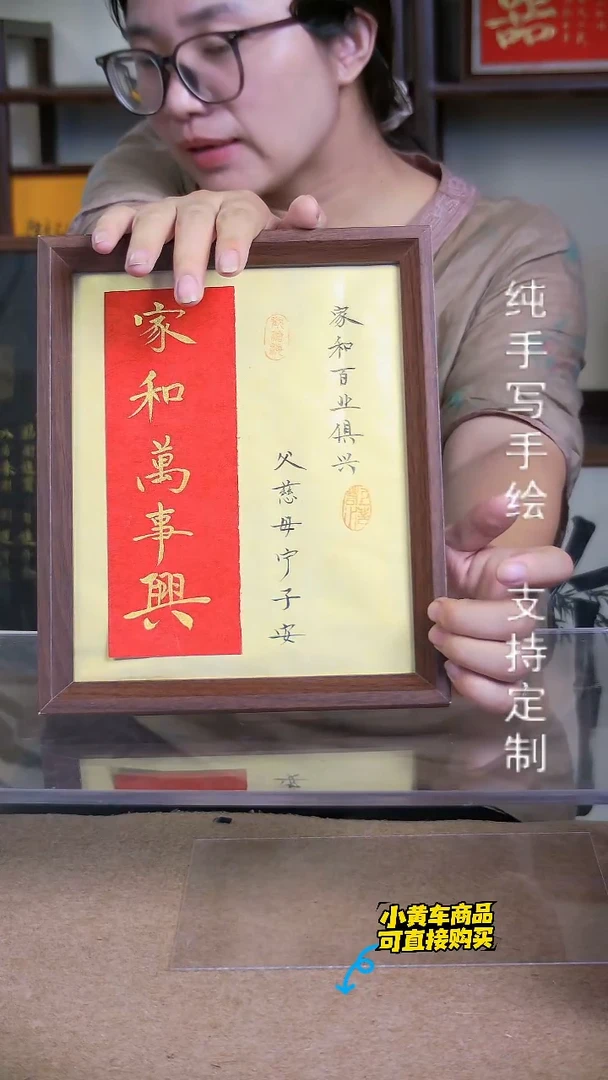 家和萬事興
家和百业俱兴
父慈母宁子安
纯手写手绘 支持定制
小黄车商品
可直接购买